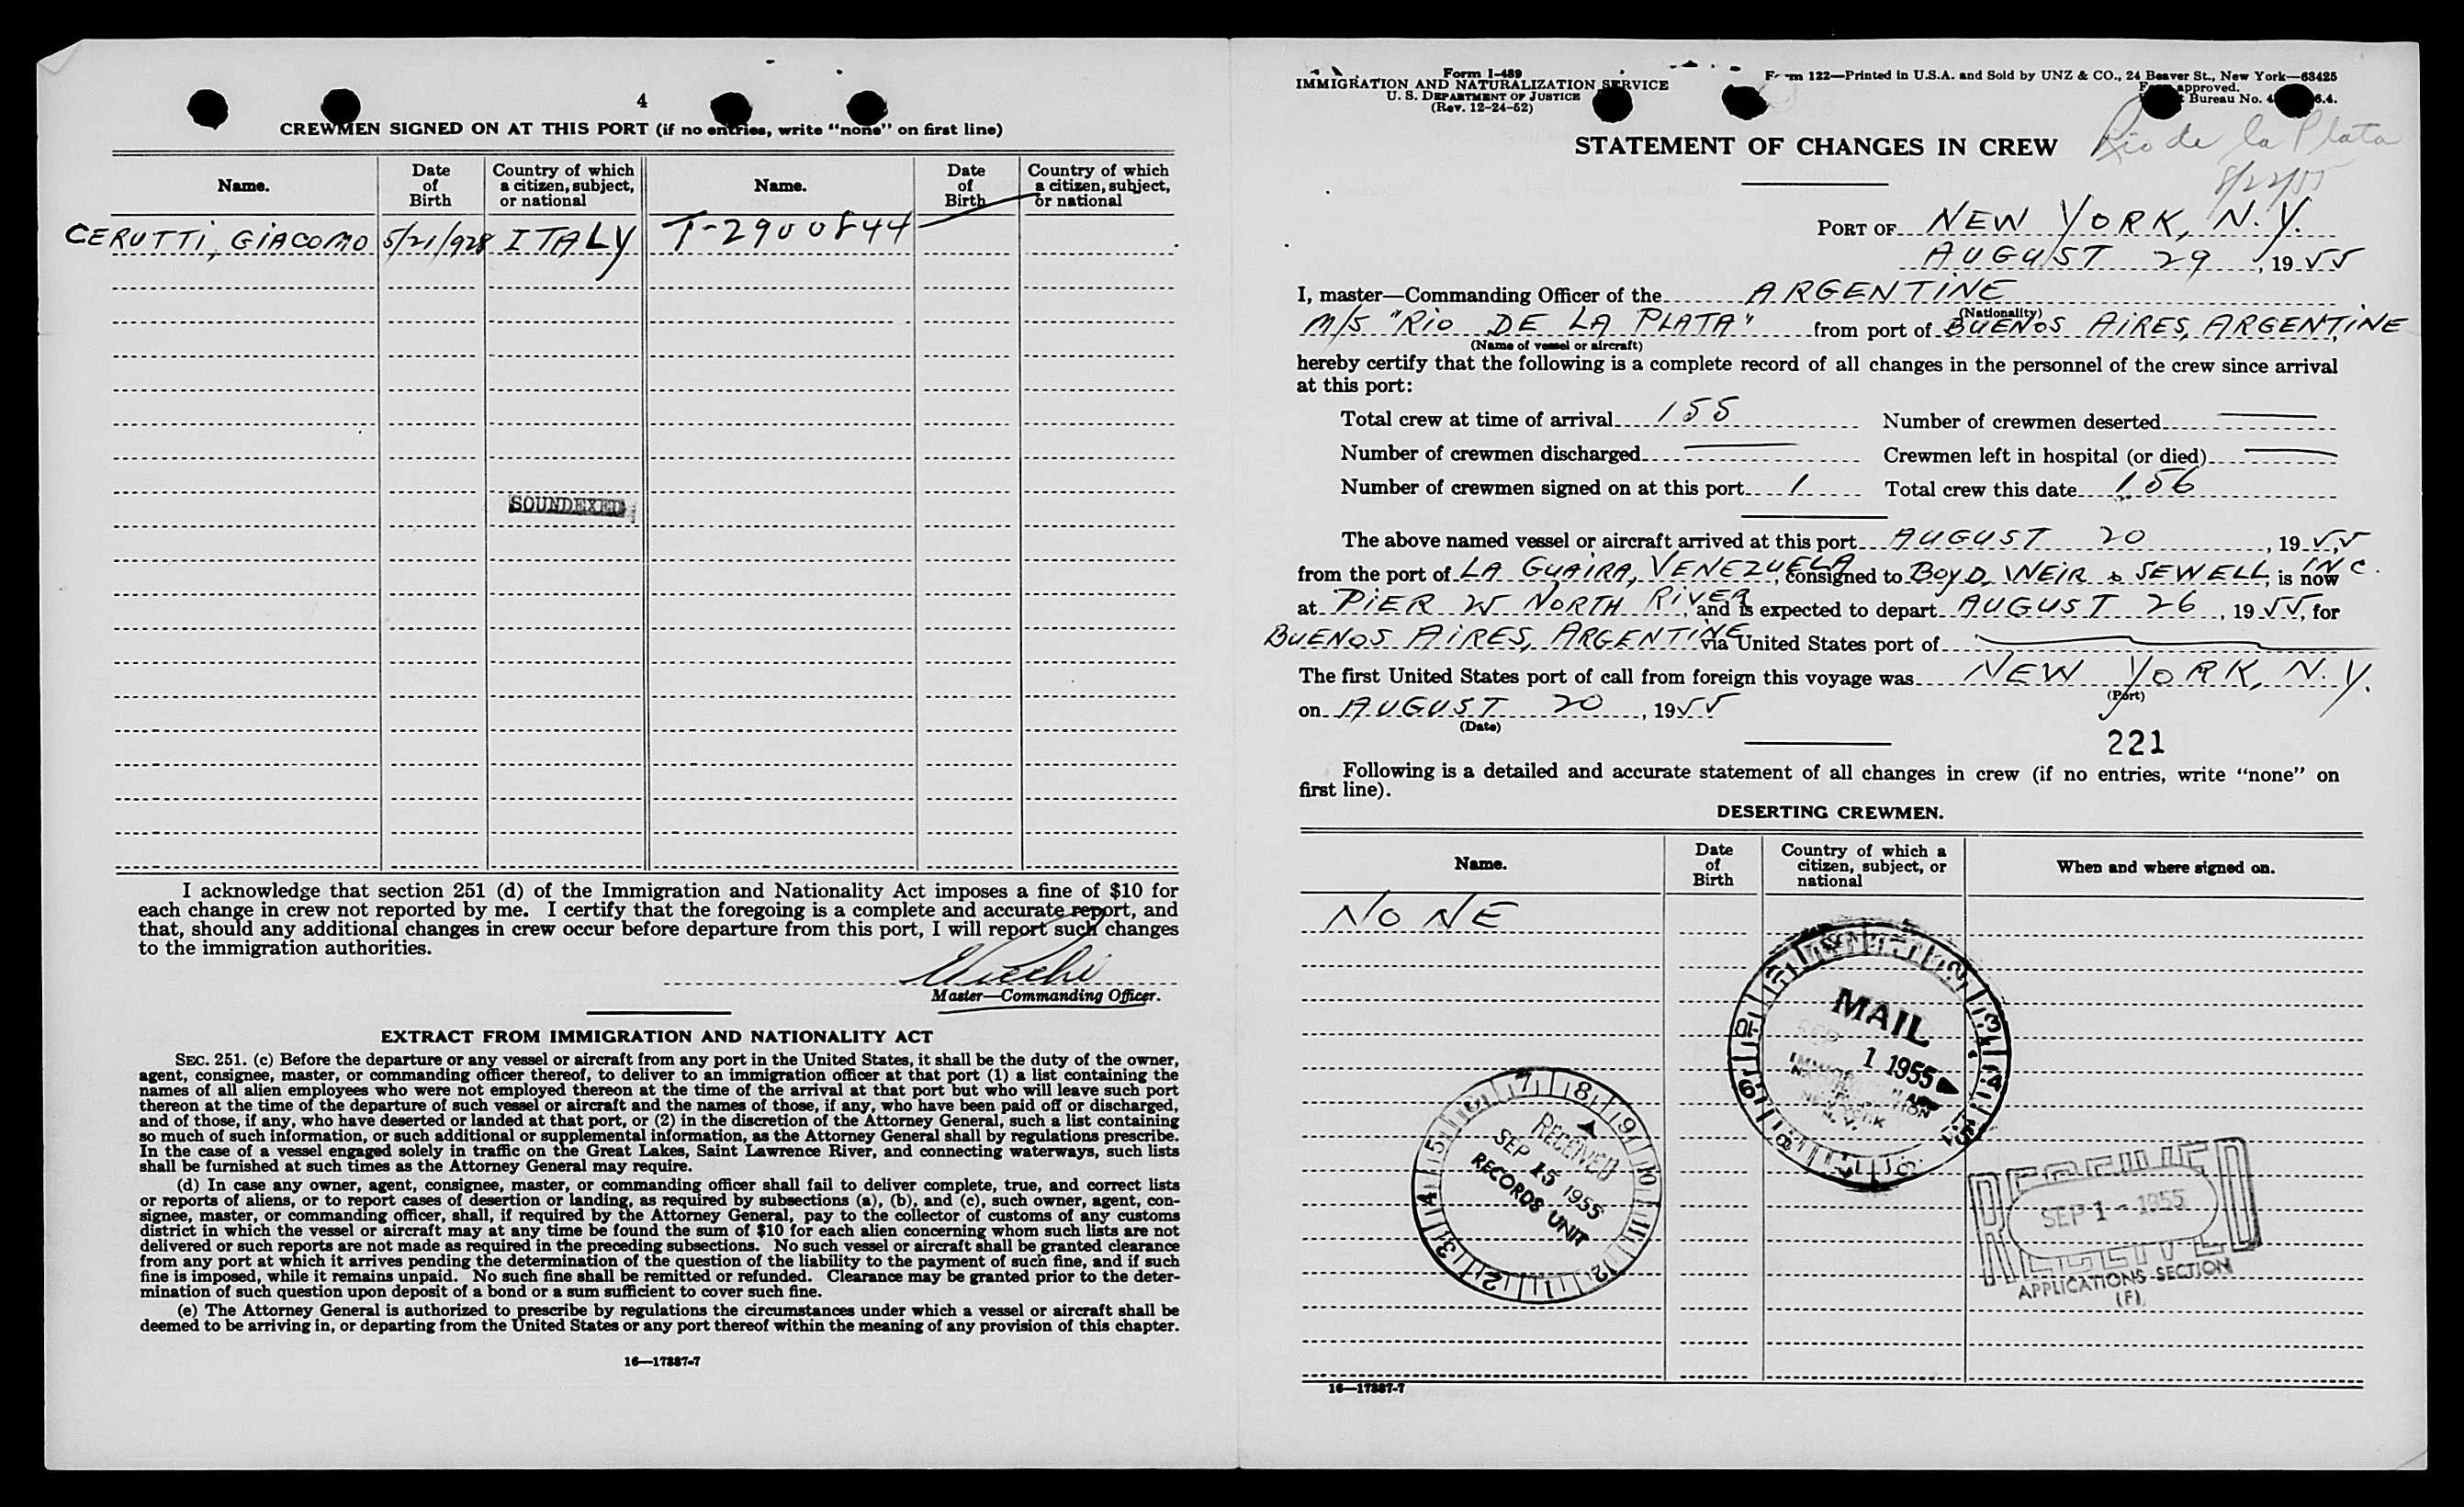 4
CREWMEN SIGNED ON AT THIS PORT (if no entries, write "none" on first line)
Name. Date of Birth Country of which a citizen, subject, or national Name. Date of Birth Country of which a citizen, subject, or national
CERUTTI, GIACOMO 5/21/928 ITALY T-2900844
SOUNDEXED
I acknowledge that section 251 (d) of the Immigration and Nationality Act imposes a fine of $10 for
each change in crew not reported by me. I certify that the foregoing is a complete and accurate report, and
that, should any additional changes in crew occur before departure from this port, I will report such changes
to the immigration authorities.
Master—Commanding Officer.
EXTRACT FROM IMMIGRATION AND NATIONALITY ACT
SEC. 251. (c) Before the departure or any vessel or aircraft from any port in the United States, it shall be the duty of the owner,
agent, consignee, master, or commanding officer thereof, to deliver to an immigration officer at that port (1) a list containing the
names of all alien employees who were not employed thereon at the time of the arrival at that port but who will leave such port
thereon at the time of the departure of such vessel or aircraft and the names of those, if any, who have been paid off or discharged,
and of those, if any, who have deserted or landed at that port, or (2) in the discretion of the Attorney General, such a list containing
so much of such information, or such additional or supplemental information, as the Attorney General shall by regulations prescribe.
In the case of a vessel engaged solely in traffic on the Great Lakes, Saint Lawrence River, and connecting waterways, such lists
shall be furnished at such times as the Attorney General may require.
(d) In case any owner, agent, consignee, master, or commanding officer shall fail to deliver complete, true, and correct lists
or reports of aliens, or to report cases of desertion or landing, as required by subsections (a), (b), and (c), such owner, agent, con-
signee, master, or commanding officer, shall, if required by the Attorney General, pay to the collector of customs of any customs
district in which the vessel or aircraft may at any time be found the sum of $10 for each alien concerning whom such lists are not
delivered or such reports are not made as required in the preceding subsections. No such vessel or aircraft shall be granted clearance
from any port at which it arrives pending the determination of the question of the liability to the payment of such fine, and if such
fine is imposed, while it remains unpaid. No such fine shall be remitted or refunded. Clearance may be granted prior to the deter-
mination of such question upon deposit of a bond or a sum sufficient to cover such fine.
(e) The Attorney General is authorized to prescribe by regulations the circumstances under which a vessel or aircraft shall be
deemed to be arriving in, or departing from the United States or any port thereof within the meaning of any provision of this chapter.
16—17887-7
Form I-489
IMMIGRATION AND NATURALIZATION SERVICE
U. S. DEPARTMENT OF JUSTICE
(Rev. 12-24-52)
Form 122—Printed in U.S.A. and Sold by UNZ & CO., 24 Beaver St., New York—63425
approved.
Bureau No.
Rio de la Plata
8/22/55
STATEMENT OF CHANGES IN CREW
PORT OF NEW YORK, N.Y.
AUGUST 29, 1955
I, master—Commanding Officer of the ARGENTINE
(Nationality)
M/S "RIO DE LA PLATA" from port of BUENOS AIRES, ARGENTINE,
(Name of vessel or aircraft)
hereby certify that the following is a complete record of all changes in the personnel of the crew since arrival
at this port:
Total crew at time of arrival 155 Number of crewmen deserted
Number of crewmen discharged Crewmen left in hospital (or died)
Number of crewmen signed on at this port 1 Total crew this date 156
The above named vessel or aircraft arrived at this port AUGUST 20, 1955
from the port of LA GUAIRA, VENEZUELA, consigned to BOYD, WEIR & SEWELL, INC. is now
at PIER 25 NORTH RIVER, and is expected to depart AUGUST 26, 1955, for
BUENOS AIRES, ARGENTINE via United States port of
The first United States port of call from foreign this voyage was NEW YORK, N.Y.
(Port)
on AUGUST 20, 1955
(Date)
221
Following is a detailed and accurate statement of all changes in crew (if no entries, write "none" on
first line).
DESERTING CREWMEN.
Name. Date of Birth Country of which a citizen, subject, or national When and where signed on.
NONE
MAIL
SEP 1 1955
NEW YORK
N. Y.
RECEIVED
SEP 15 1955
RECORDS UNIT
RECEIVED
SEP 1 - 1955
APPLICATIONS SECTION
(F)
16—17887-7